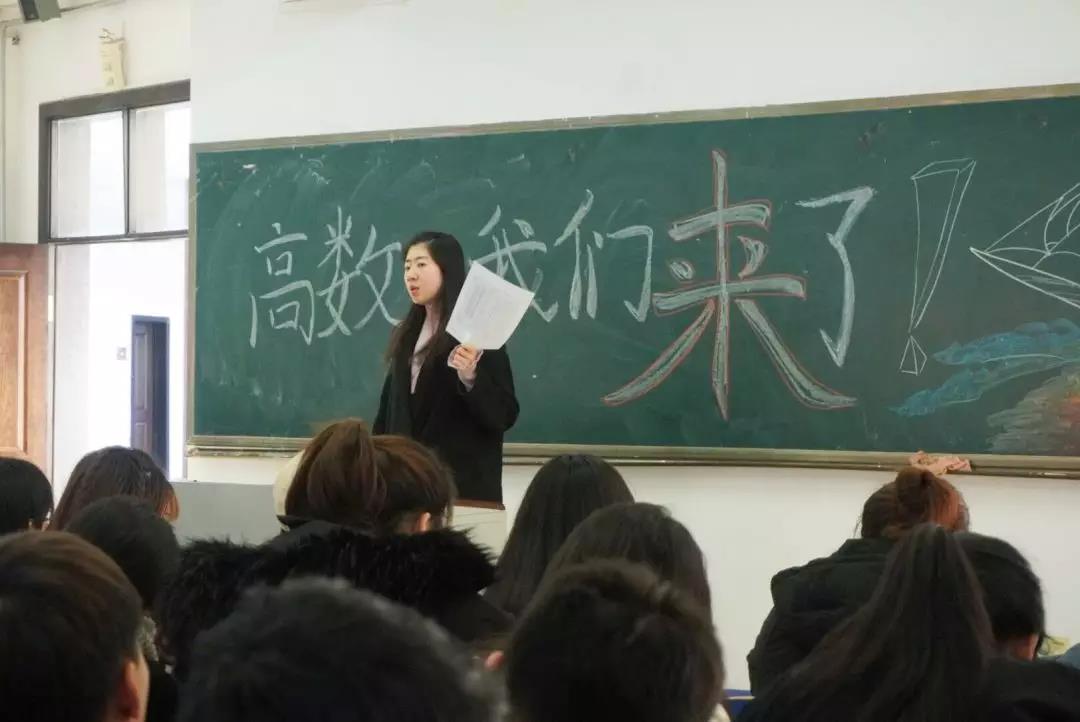 高数我们来了！